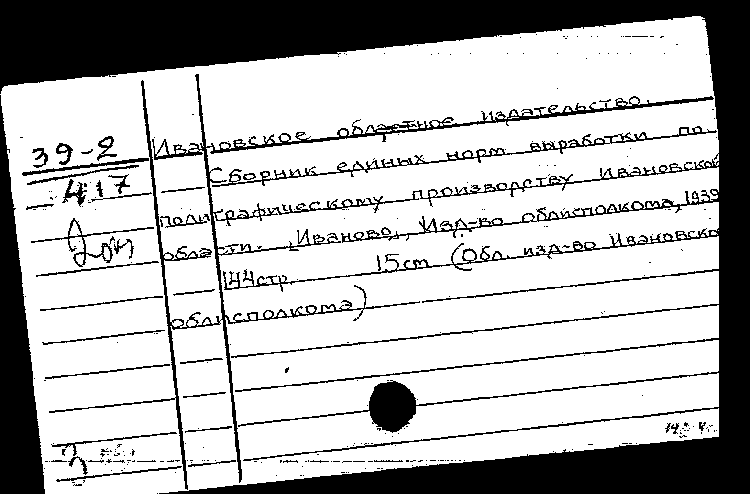 39-2
417
Ивановское областное издательство.
Сборник единых норм выработки по
полиграфическому производству Ивановской
области. Иваново, Изд-во облисполкома, 1939
144стр. 15cm (Обл. изд-во Ивановско
облисполкома)
3